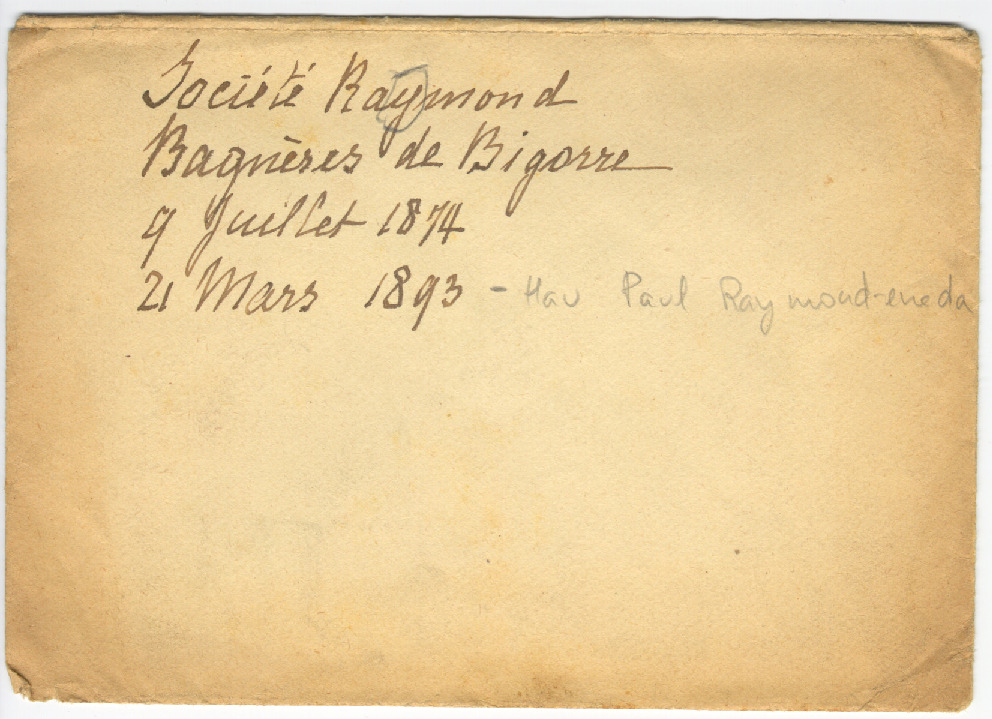 Société Raymond
Bagnères de Bigorre
9 Juillet 1874
21 Mars 1893 - Hau Paul Raymond-ena da